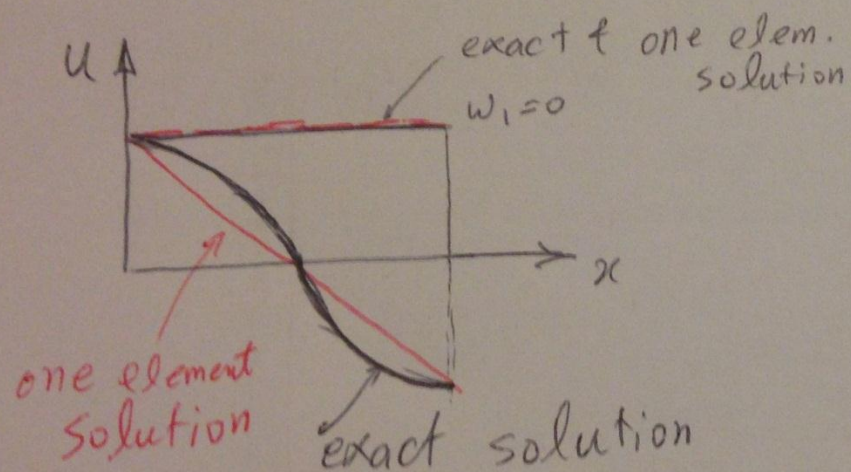 u
exact & one elem.
solution
w₁=0
x
one element
solution
exact solution